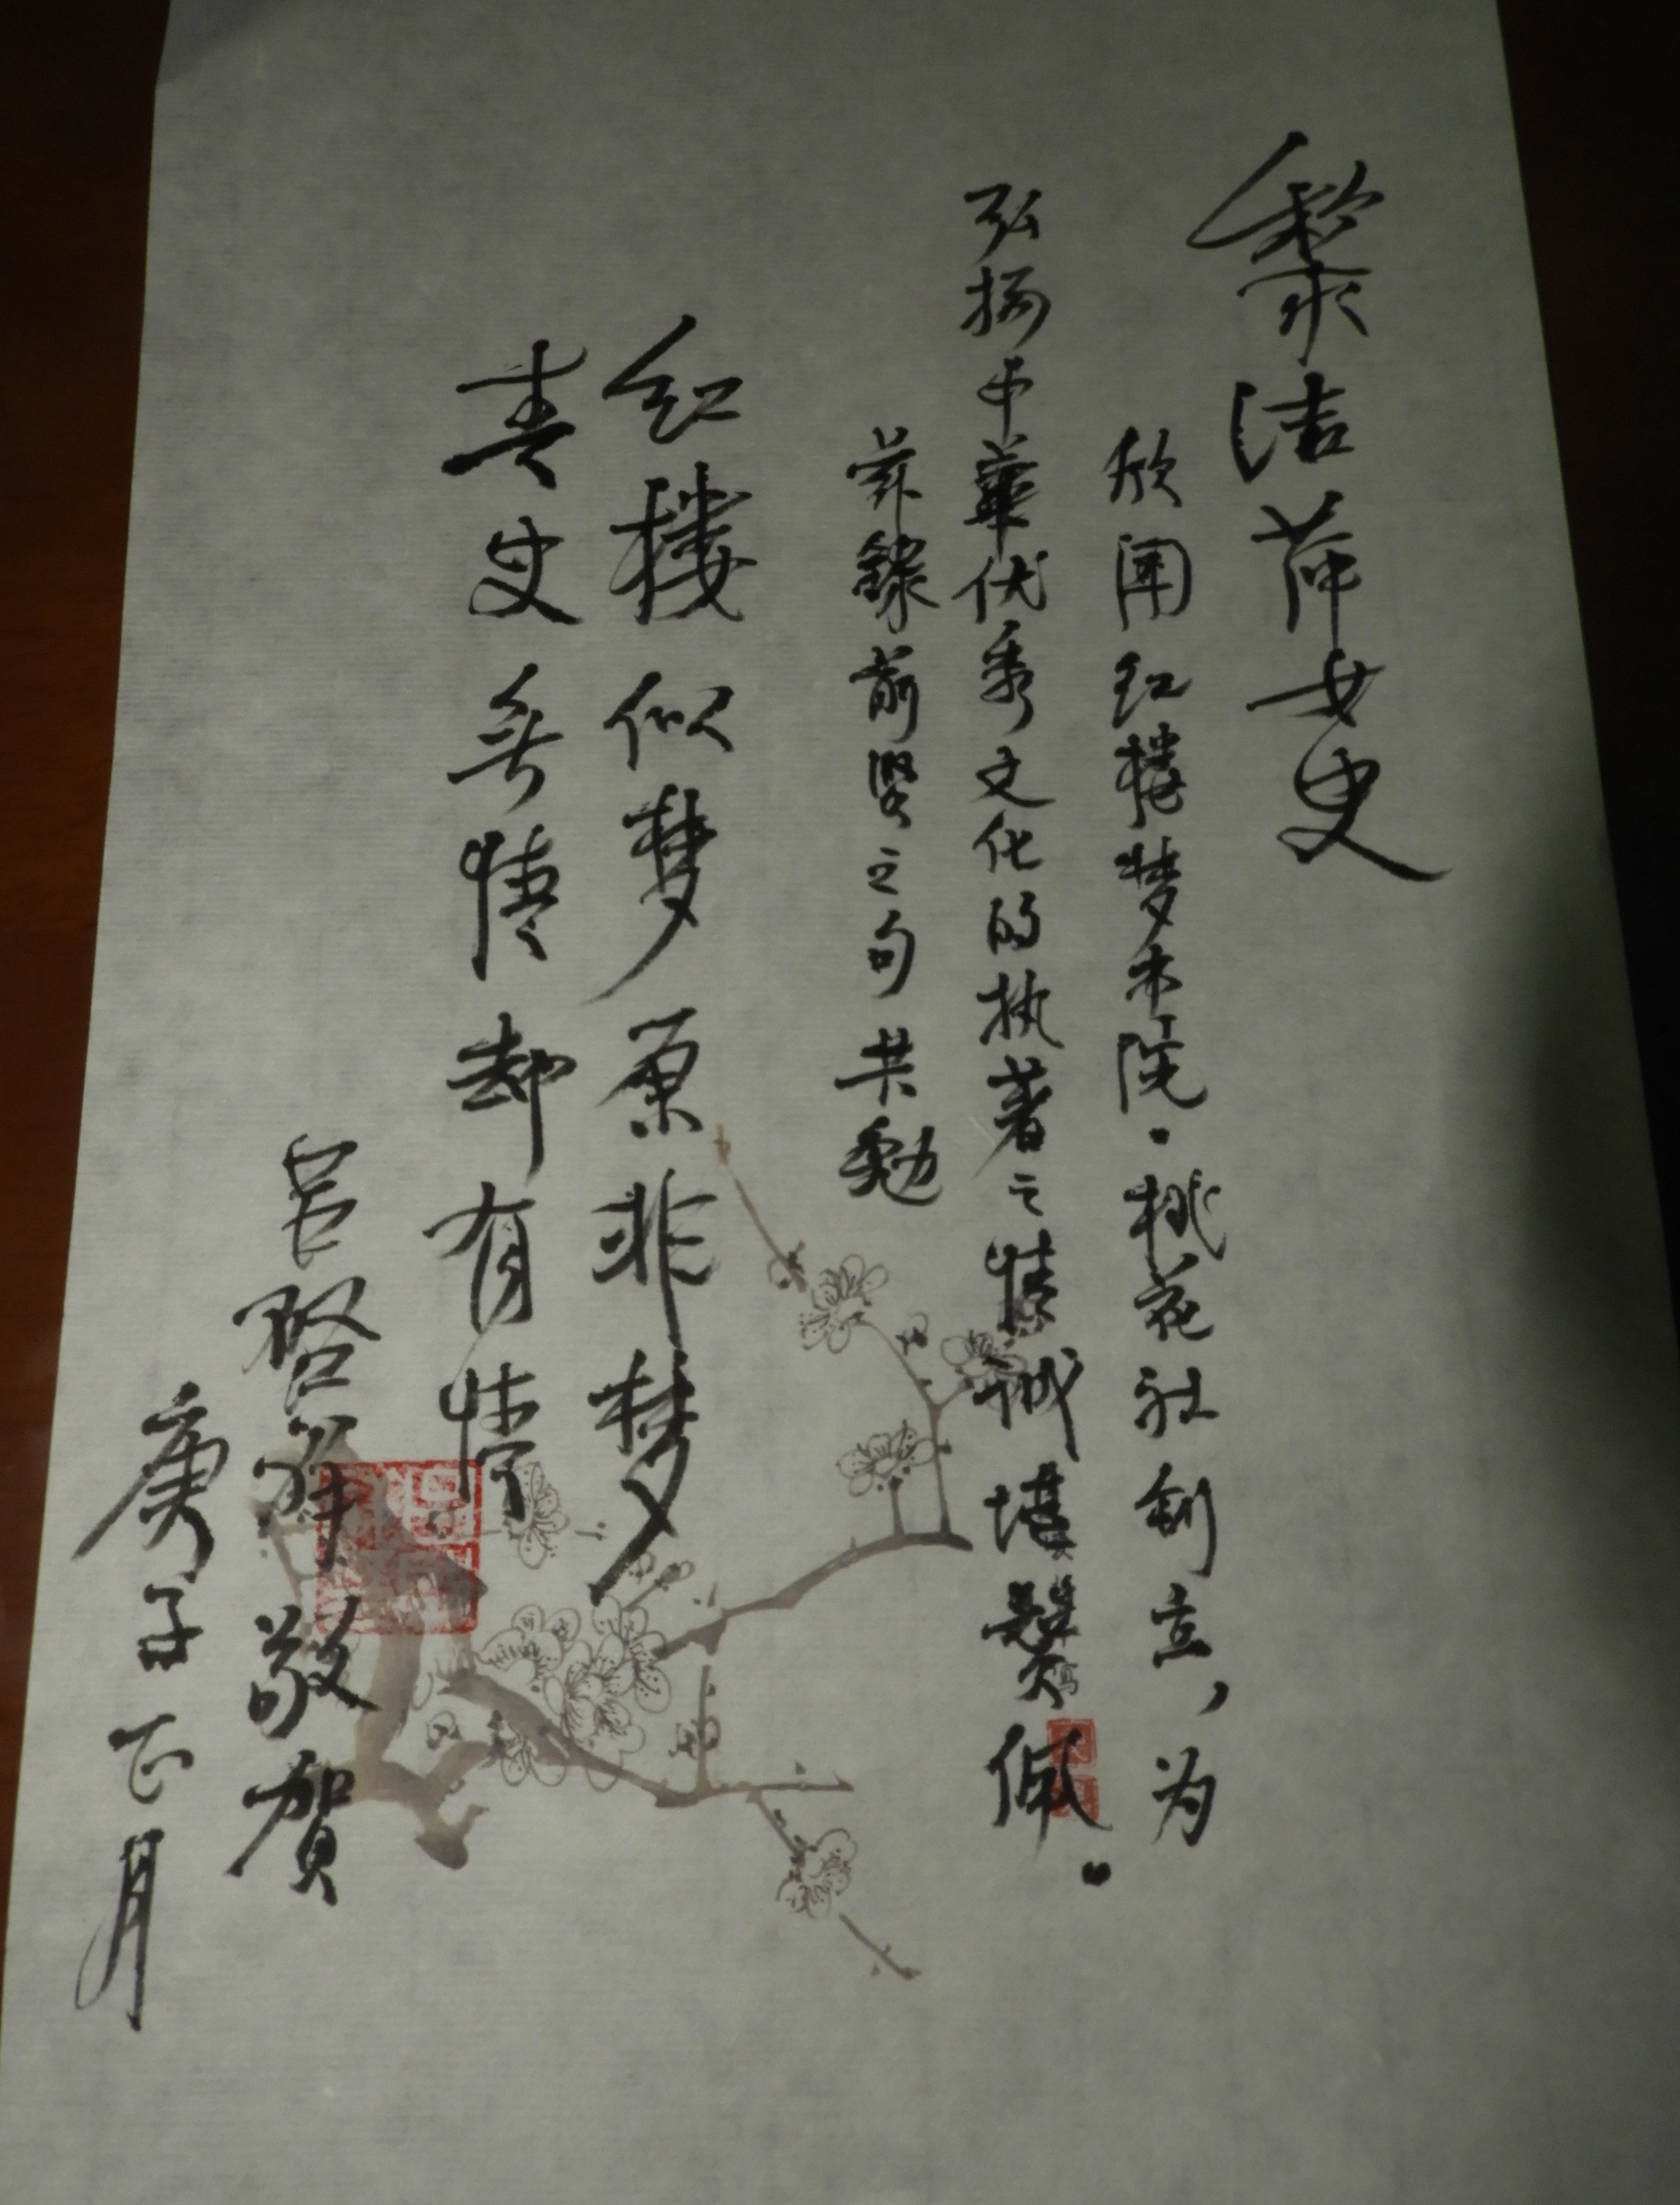 黎洁萍女史
欣闻红楼梦书院·桃花社创立，为
弘扬中華优秀文化的执著之情诚堪贊佩。
兹錄前贤之句共勉
红楼似梦原非梦
青史无情却有情
吕啓祥敬贺
庚子正月